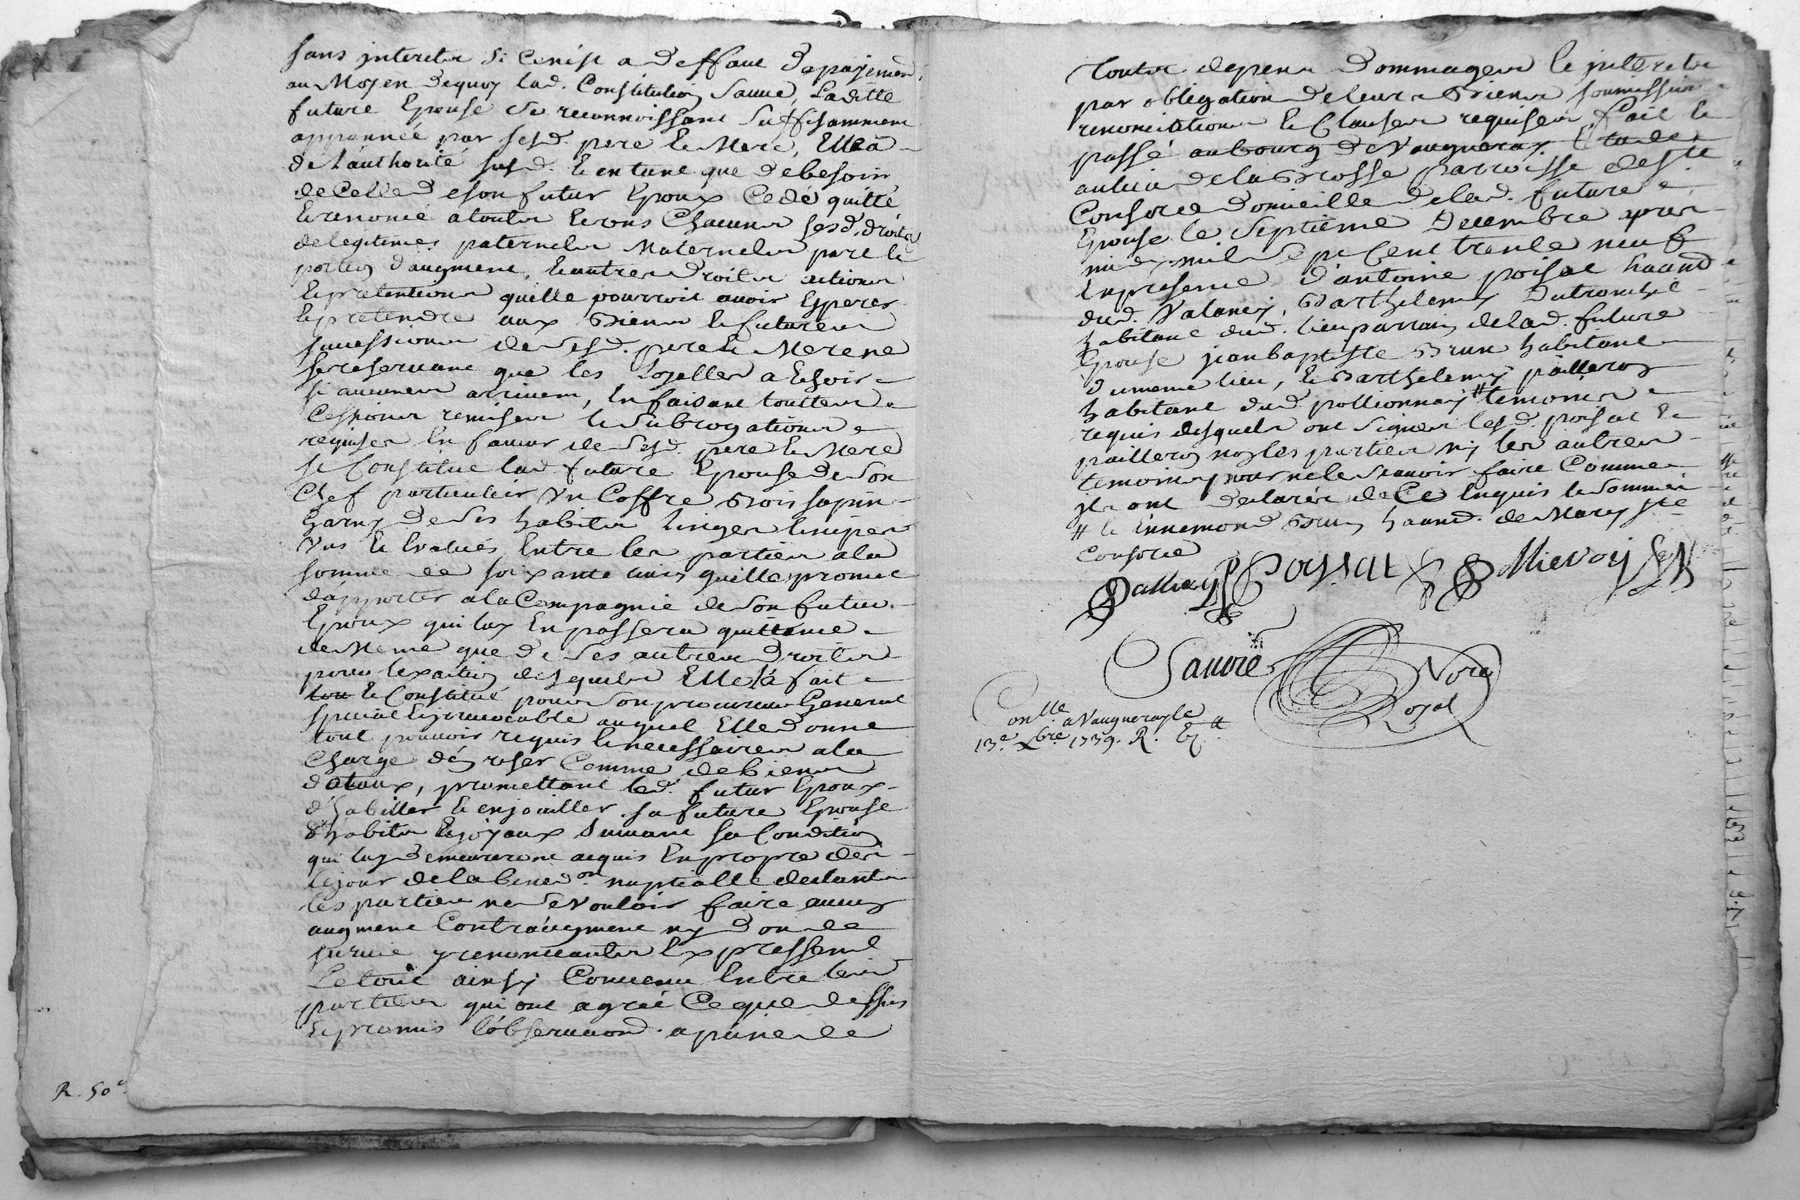 sans interets si cenest a deffaut depayement
au Moyen dequoy lad. Constitution Laditte
future Epouse se reconnoissant suffisamment
appannée par sesd. pere & Mere, Elle a
de l'authorité susd. & en tant que debesoin
decelle desonfutur Epoux Cedé quitté
& renoncé atouts & uns Chacuns sesd. droits
delegitimes paternels Maternels part &
portion d'augment, & autres droits actions
& pretentions quelle pourroit avoir Esperer
& pretendre aux Biens & futures
successions de sesd. pere & Mere ne
sereservant que les Loyalles a Echoir
si aucunes arrivent, En faisant touttes
Cessions remises & subrogations
requises En faveur de sesd. pere & Mere
se Constitue lad. future Epouse de son
Chef particulier un Coffre Bois sapin
Garny de ses habits linges
vus & Evalués Entre les parties ala
somme de soixante livres quelle promet
d'apporter ala Compagnie deson futur
Epoux qui luy En passera quittance
demême que de ses autres droits
pour lexaction desquels Elle l'a fait
& Constitué pour son procureur General
special & irrevocable auquel Elle donne
tout pouvoir requis & necessaires ala
Charge d'en user Comme de biens
dotaux, promettant led. futur Epoux
d'habiller & enjoailler sa future Epouse
d'habits & joyaux suivant sa Condition
qui luy demeureront acquis En propre des
lejour de la bened.on nuptialle declarants
les parties ne vouloir faire aucun
augment Contraugment ny don de
survie y renonceants Expressemt
Le tout ainsy Convenu Entre lesd
parties qui ont agréé Ceque dessus
& promis l'observaond. a peine de
R. 50s.
toutes depens dommages & interets
par obligation deleurs Biens soumissions
renonciations & Clauses requises, fait &
passé aubourg de Vaugneray Etude
aulieu dela Brosse parroisse de Ste
Consorce domicille delad. future
Epouse le septieme Decembre apres
midy mil sept Cent trente neuf
En presence d'antoine poisat haand
dud. Valancy, Barthelemy
habitant dud. lieu parrain delad. future
Epouse jean baptiste Brun habitant
dumeme lieu, & Barthelemy pailleron
habitant dud. pollionnay # temoins
requis desquels ont signé lesd. poisat &
pailleron non les parties ny les autres
temoins pour ne le scavoir faire Comme
ils ont declaré de Ce Enquis & sommés
# & Ennemond Brun haand. de Marcy Ste
Consorce
Poyssat
Sauvié Nore
Royal
Conllé a Vaugneray le
13e xbre 1739. R.